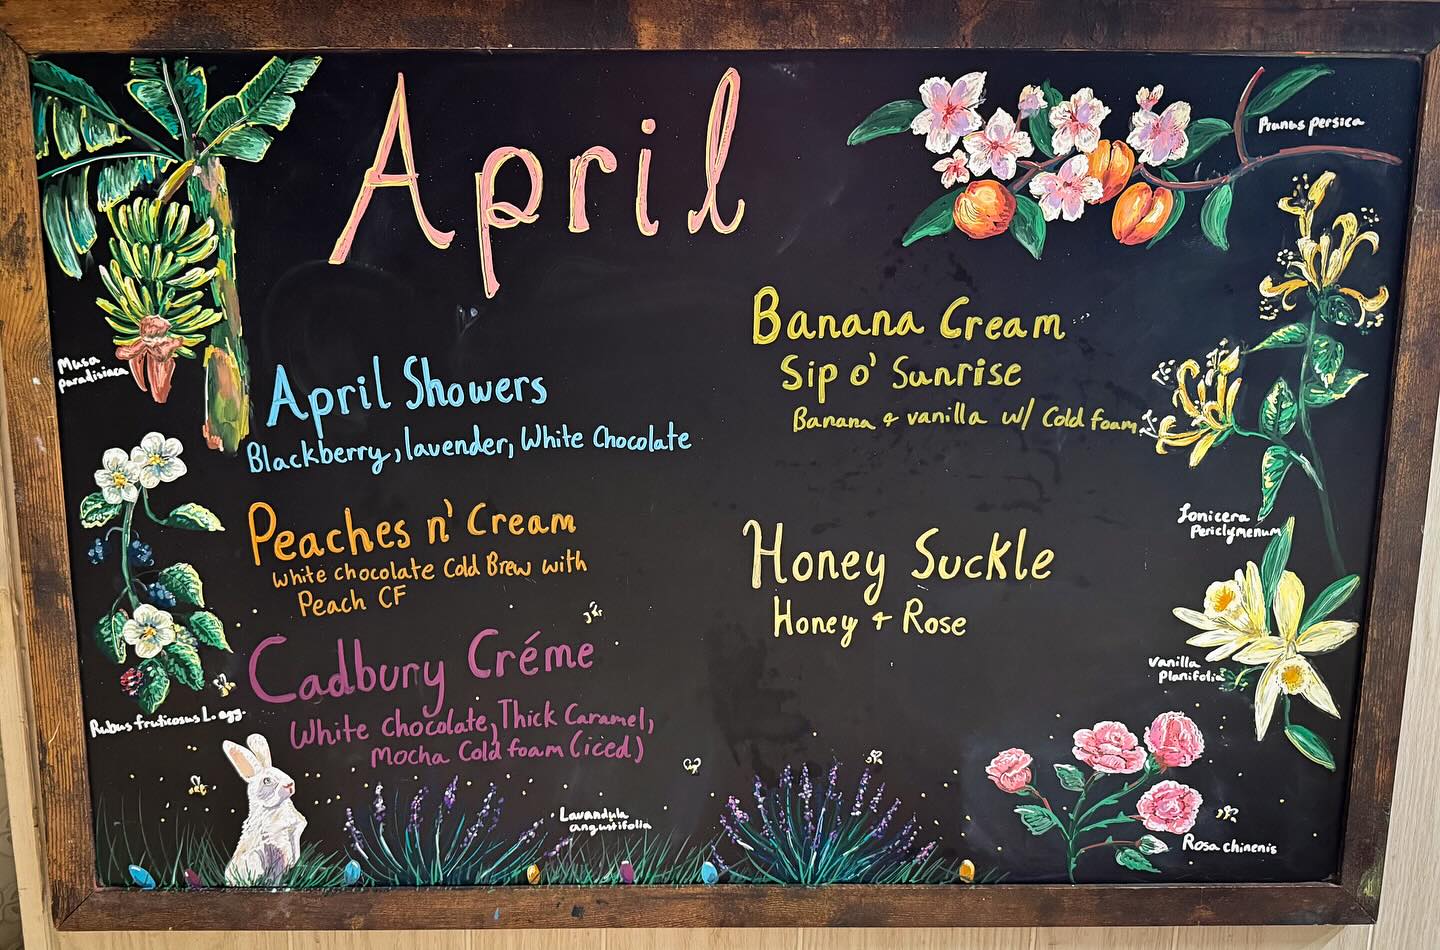 April
April Showers
Blackberry, lavender, White Chocolate
Peaches n' Cream
White chocolate Cold Brew with
Peach CF
Cadbury Créme
White chocolate, Thick Caramel,
Mocha Cold foam (iced)
Banana Cream
Sip o' Sunrise
Banana + vanilla w/ Cold foam
Honey Suckle
Honey + Rose
Musa
paradisiaca
Rubus fruticosus L. agg.
Lavandula
angustifolia
Prunus persica
Lonicera
Periclymenum
Vanilla
Planifolia
Rosa chinenis